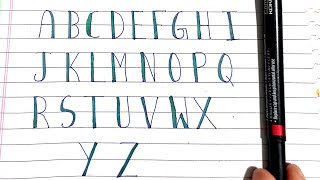 A B C D E F G H I
J K L M N O P Q
R S T U V W X
Y Z